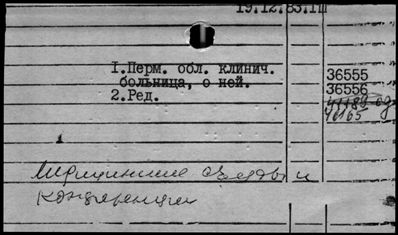 19.12.83.ПШ
1.Перм. обл. клинич.
больница, о ней.
2.Ред.
36555
36556
Медицинские съезды и
конференции